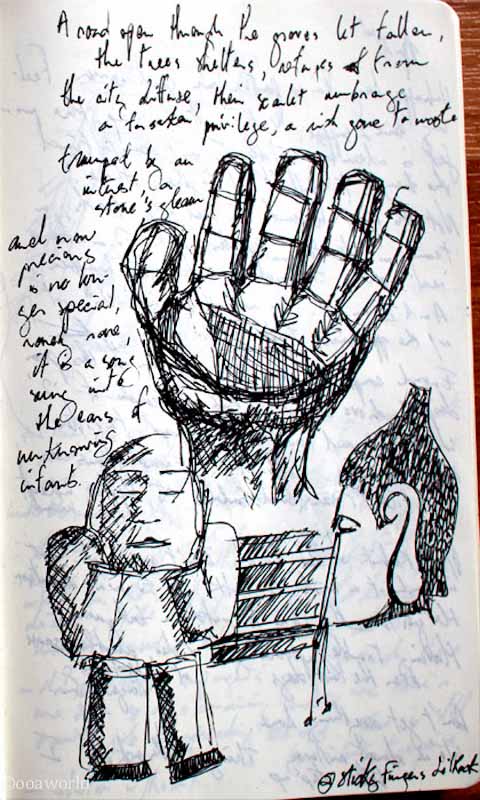 A road open through the groves let fallen,
the trees shelters, refuges from
the city diffuse, their scarlet umbrage
a forsaken privilege, a rich gone to waste
trumpet by an
interest, a
stone's gleam
and now
precious
is no lon-
ger special,
rare,
it is a song
sung into
the ears of
unknowing
infants.
@ Sticky Fingers
©ooaworld